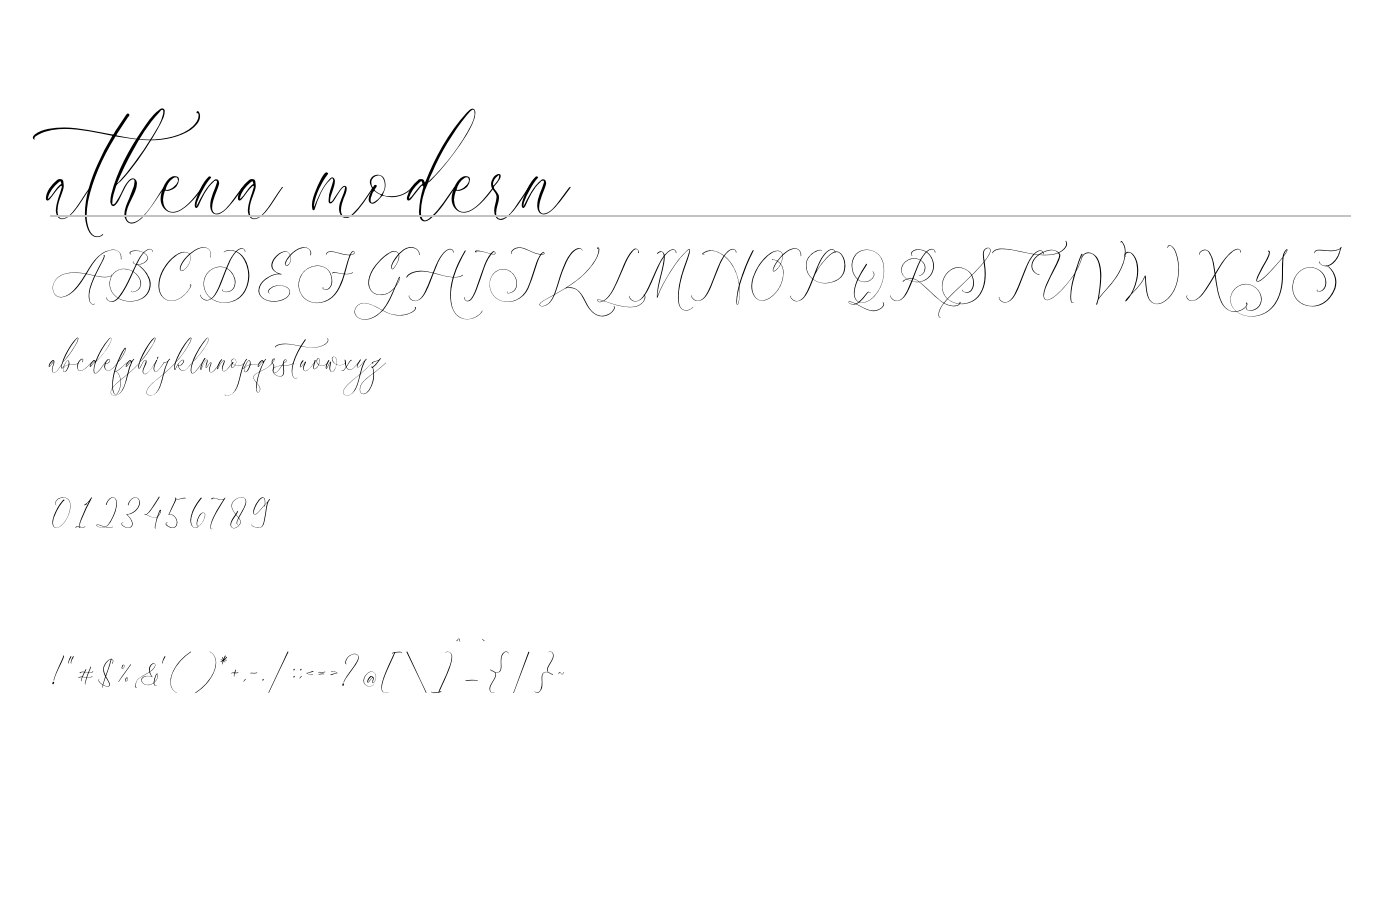 athena modern
ABCDEFGHIJKLMNOPQRSTUVWXYZ
abcdefghijklmnopqrstuvwxyz
0123456789
!"#$%&'()*+,-./:;<=>?@[\]^_`{|}~